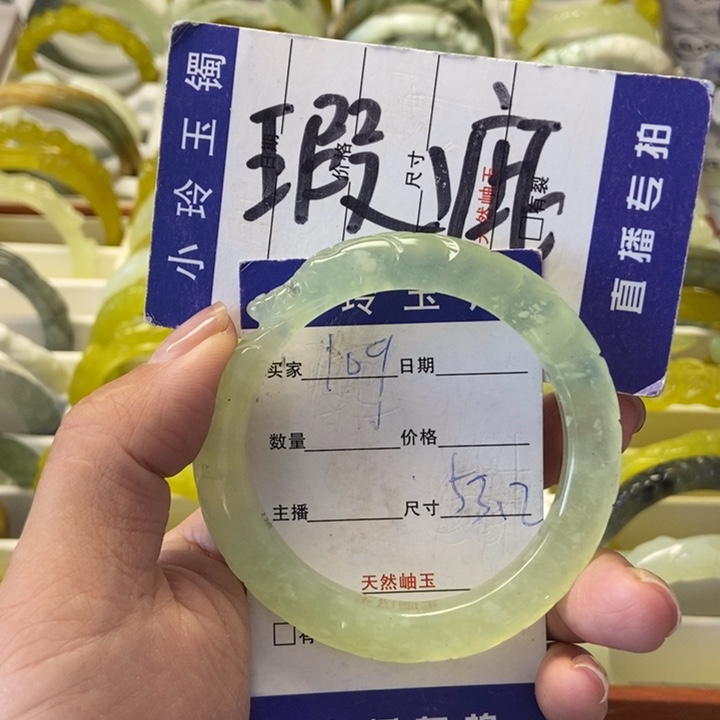 小玲玉镯
瑕疵
日期
价格
尺寸
天然岫玉
□有裂
直播专拍
玲玉
买家 109 日期
数量 1 价格
主播 尺寸 53.2
天然岫玉
□有